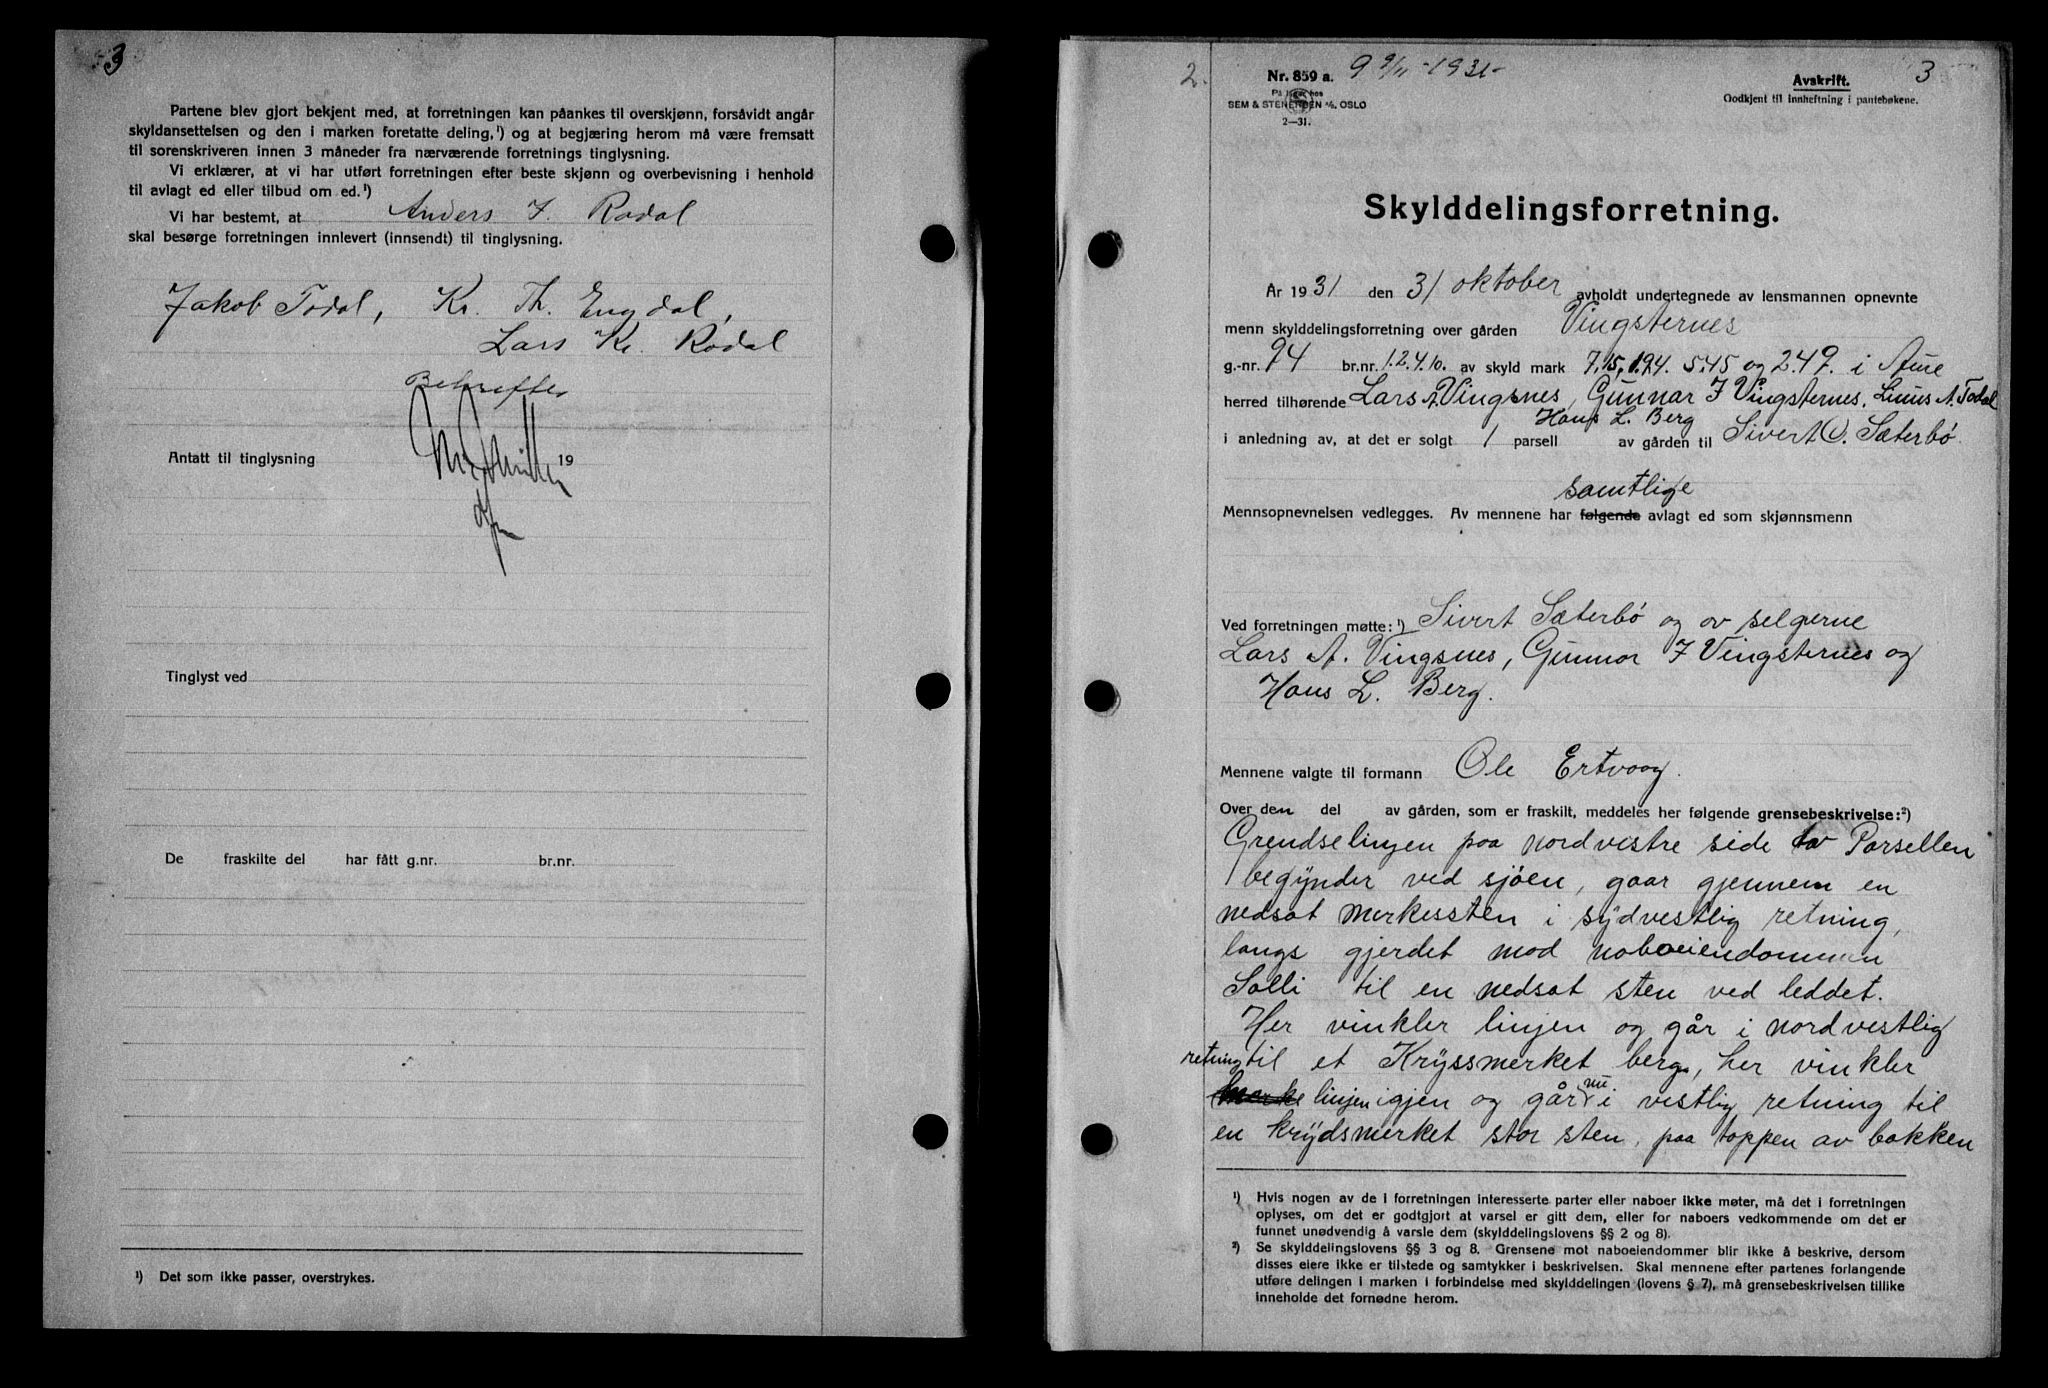 3
Partene blev gjort bekjent med, at forretningen kan påankes til overskjønn, forsåvidt angår
skyldansettelsen og den i marken foretatte deling,¹) og at begjæring herom må være fremsatt
til sorenskriveren innen 3 måneder fra nærværende forretnings tinglysning.
Vi erklærer, at vi har utført forretningen efter beste skjønn og overbevisning i henhold
til avlagt ed eller tilbud om ed.¹)
Vi har bestemt, at Anders J. Rodal
skal besørge forretningen innlevert (innsendt) til tinglysning.
Jakob Todal, Kr. Th. Engdal,
Lars Kr. Rodal
Bekreftes
Antatt til tinglysning 19
Tinglyst ved
De fraskilte del har fått g.nr. br.nr.
¹) Det som ikke passer, overstrykes.
2. Nr. 859 a. 9 9/11 - 1931 - Avskrift. 3
På lager hos
SEM & STENERSEN A/S. OSLO Godkjent til innheftning i pantebøkene.
2—31.
Skylddelingsforretning.
År 1931 den 31 oktober avholdt undertegnede av lensmannen opnevnte
menn skylddelingsforretning over gården Vingsternes
g.-nr. 94 br.nr. 1.2.4.10. av skyld mark 7,15, 1.94. 5.45 og 2.49. i Aure
herred tilhørende Lars A. Vingsnes, Gunnar J Vingsternes, Linus A. Todal
Hans L. Berg
i anledning av, at det er solgt 1 parsell av gården til Sivert O. Sæterbø
samtlige
Mennsopnevnelsen vedlegges. Av mennene har følgende avlagt ed som skjønnsmenn
Ved forretningen møtte:¹) Sivert Sæterbø og av selgerne
Lars A. Vingsnes, Gunnar J Vingsternes og
Hans L. Berg.
Mennene valgte til formann Ole Ertvaag.
Over den del av gården, som er fraskilt, meddeles her følgende grensebeskrivelse:²)
Grendselinjen paa nordvestre side av Parsellen
begynder ved sjøen, gaar gjennem en
nedsat merkessten i sydvestlig retning,
langs gjerdet mod naboeiendommen
Solli til en nedsat sten ved leddet.
Her vinkler linjen og går i nordvestlig
retning til et Kryssmerket berg, her vinkler
merke linjen igjen og går nu i vestlig retning til
en krydsmerket stor sten, paa toppen av bakken
¹) Hvis nogen av de i forretningen interesserte parter eller naboer ikke møter, må det i forretningen
oplyses, om det er godtgjort at varsel er gitt dem, eller for naboers vedkommende om det er
funnet unødvendig å varsle dem (skylddelingslovens §§ 2 og 8).
²) Se skylddelingslovens §§ 3 og 8. Grensene mot naboeiendommer blir ikke å beskrive, dersom
disses eiere ikke er tilstede og samtykker i beskrivelsen. Skal mennene efter partenes forlangende
utføre delingen i marken i forbindelse med skylddelingen (lovens § 7), må grensebeskrivelsen tillike
inneholde det fornødne herom.